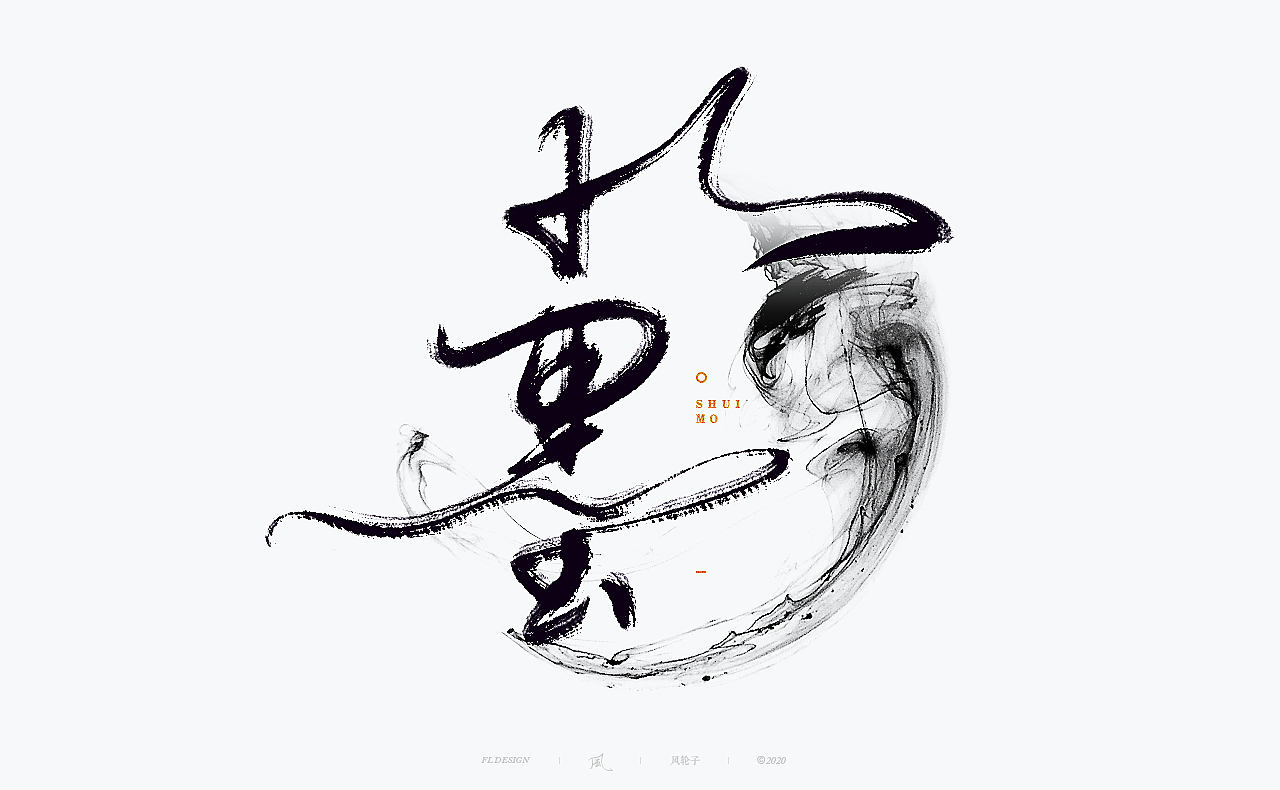 水墨
SHUI
MO
FL DESIGN
風
风轮子
©2020